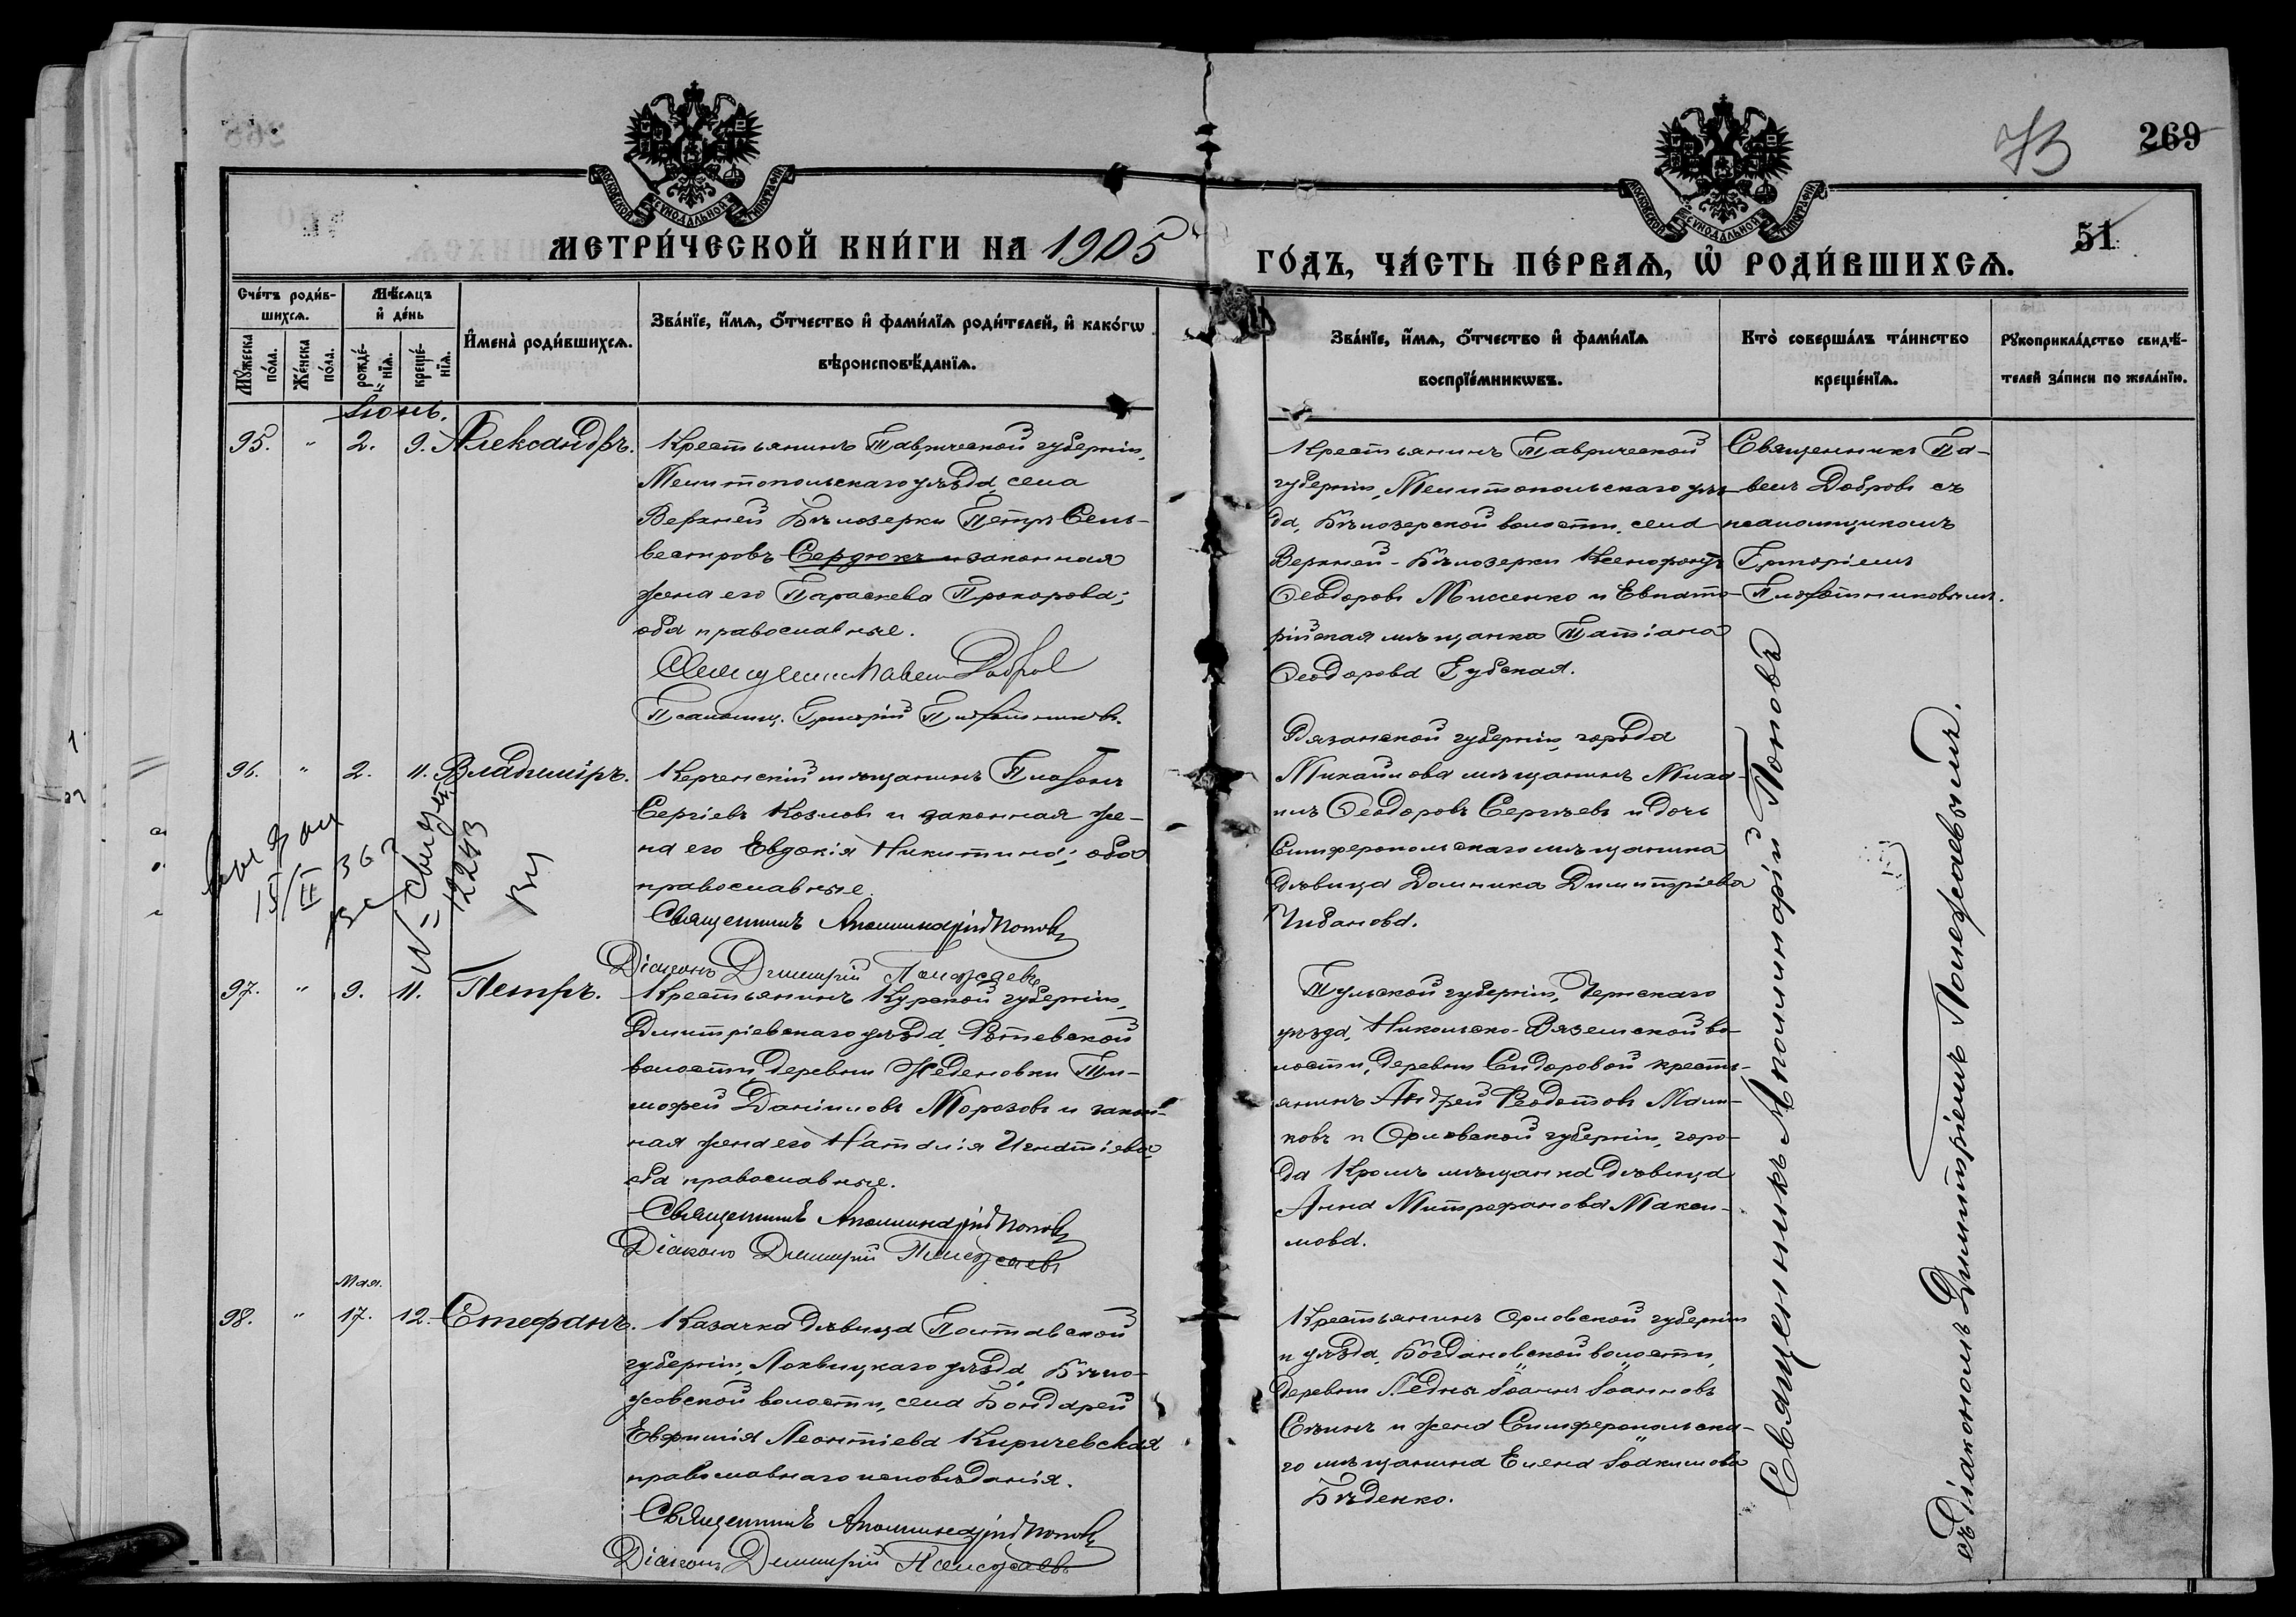 269
73
51
МЕТРИ́ЧЕСКОЙ КНИ́ГИ НА 1905
ГО́ДЪ, ЧА́СТЬ ПЕ́РВАѦ, Ѡ҆ РОДИ́ВШИХСѦ.
Сче́тъ роди́в-
шихсѧ.
Мѣ́сѧцъ
и҆ де́нь
Мꙋ́жеска
по́ла.
Же́нска
по́ла.
рожде́-
нїѧ.
креще́-
нїѧ.
И҆мена̀ роди́вшихсѧ.
Зва́нїе, и҆́мѧ, ѻ҆́тчество и҆ фами́лїѧ роди́телей, и҆ како́гѡ
вѣроисповѣ́данїѧ.
Зва́нїе, и҆́мѧ, ѻ҆́тчество и҆ фами́лїѧ
воспрїе́мникѡвъ.
Кто̀ соверша́лъ та́инство
креще́нїѧ.
Рꙋкоприкла́дство свидѣ́-
телей за́писи по жела́нїю.
Іюнь.
95. " 2. 9. Александръ.
Крестьянинъ Таврической губерніи,
Мелитопольскаго уѣзда, села
Верхней Бѣлозерки Петръ Сель-
вестровъ Сердюкъ и законная
жена его Параскева Прохорова;
оба православные.
Священникъ Павелъ Добров
Псаломщ. Григорій Плотниковъ.
Крестьянинъ Таврической
губерніи, Мелитопольскаго уѣз-
да, Бѣлозерской волости, села
Верхней-Бѣлозерки Ксенофонтъ
Ѳеодоровъ Миссенко и Евпато-
рійская мѣщанка Татіана
Ѳеодорова Губская.
Священникъ Па-
велъ Добровъ съ
псаломщикомъ
Григоріемъ
Плотниковымъ.
96. " 2. 11. Владиміръ.
Керченскій мѣщанинъ Платонъ
Сергіевъ Козловъ и законная же-
на его Евдокія Никитина; оба
православные.
Священникъ Аполлинарій Поповъ
Діаконъ Димитрій Полежаевъ
Рязанской губерніи, города
Михайлова мѣщанинъ Миха-
илъ Ѳеодоровъ Сергѣевъ и дочь
Симферопольскаго мѣщанина
дѣвица Домника Димитріева
Чибанова.
15/II
363
N= свидѣт.
12243
97. " 9. 11. Петръ.
Крестьянинъ Курской губерніи,
Дмитріевскаго уѣзда,
волости, деревни Неденовки Ти-
моѳей Даніиловъ Морозовъ и закон-
ная жена его Наталія Игнатіева
оба православные.
Священникъ Аполлинарій Поповъ
Діаконъ Димитрій Полежаевъ
Тульской губерніи, Чернскаго
уѣзда, Никольско-Вяземской во-
лости, деревни Сидоровой кресть-
янинъ Андрей Ѳеодотовъ Мали-
ковъ и Орловской губерніи, горо-
да Кромъ мѣщанка дѣвица
Анна Митрофанова Макси-
мова.
Мая.
98. " 17. 12. Стефанъ.
Казачка дѣвица Полтавской
губерніи, Лохвицкаго уѣзда, Бѣло-
усовской волости, села Бондарей
Евфимія Леонтіева Киричевская
православнаго исповѣданія.
Священникъ Аполлинарій Поповъ
Діаконъ Димитрій Полежаевъ
Крестьянинъ Орловской губерніи
и уѣзда, Богдановской волости,
деревни Ледны Іоаннъ Іоанновъ
Сѣинъ и жена Симферопольска-
го мѣщанина Елена Іоакимова
Бѣденко.
Священникъ Аполлинарій Поповъ
съ Діакономъ Димитріемъ Полежаевымъ.